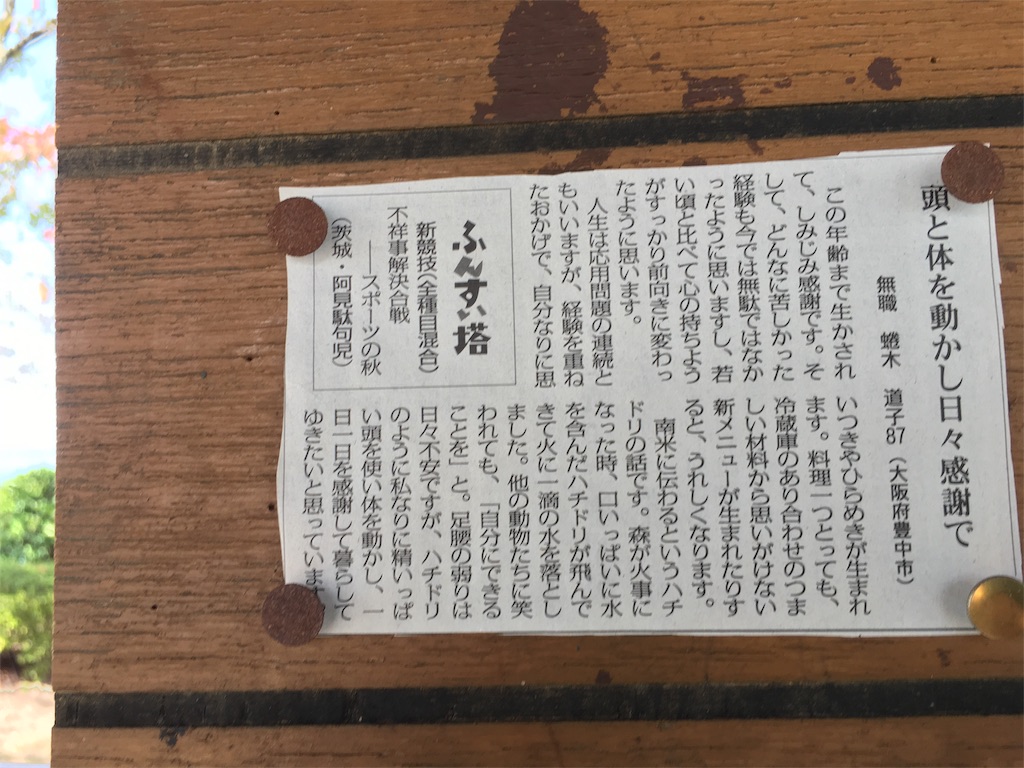 頭と体を動かし日々感謝で
無職 蜷木 道子87（大阪府豊中市）
この年齢まで生かされ
て、しみじみ感謝です。そ
して、どんなに苦しかった
経験も今では無駄ではなか
ったように思いますし、若
い頃と比べて心の持ちよう
がすっかり前向きに変わっ
たように思います。
人生は応用問題の連続と
もいいますが、経験を重ね
たおかげで、自分なりに思
いつきやひらめきが生まれ
ます。料理一つとっても、
冷蔵庫のあり合わせのつま
しい材料から思いがけない
新メニューが生まれたりす
ると、うれしくなります。
南米に伝わるというハチ
ドリの話です。森が火事に
なった時、口いっぱいに水
を含んだハチドリが飛んで
きて火に一滴の水を落とし
ました。他の動物たちに笑
われても、「自分にできる
ことを」と。足腰の弱りは
日々不安ですが、ハチドリ
のように私なりに精いっぱ
い頭を使い体を動かし、一
日一日を感謝して暮らして
ゆきたいと思っています
ふんすい塔
新競技（全種目混合）
不祥事解決合戦
――スポーツの秋
（茨城・阿見駄句児）